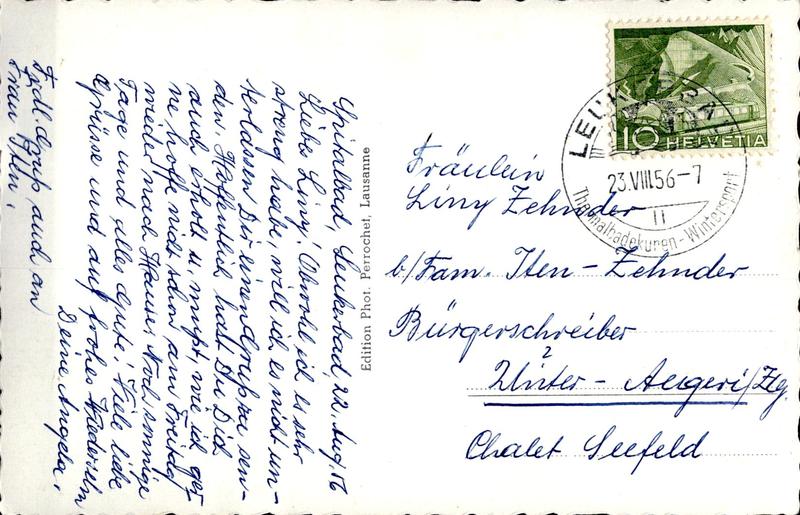 Spitalbad, Leukerbad 22. Aug. 56
Liebe Liny! Obwohl ich es sehr
streng habe, will ich es nicht un-
terlassen Dir einen Gruss zu sen-
den. Hoffentlich hast Du Dich
auch erholt u. musst, wie ich ger-
ne hoffe nicht schon am Freitag
wieder nach Hause. Noch sonnige
Tage und alles Gute! Viele liebe
Grüsse und auf frohes Wiedersehn
Deine Angela.
Frdl. Gruss auch an
Frau Iten.
Edition Phot. Perrochet, Lausanne
10 HELVETIA
LEUKERBAD
23.VIII.56-7
II
Thermalbadekuren-Wintersport
Fräulein
Liny Zehnder
b/Fam. Iten-Zehnder
Bürgerschreiber
Unter-Aegeri/Zg.
Chalet Seefeld